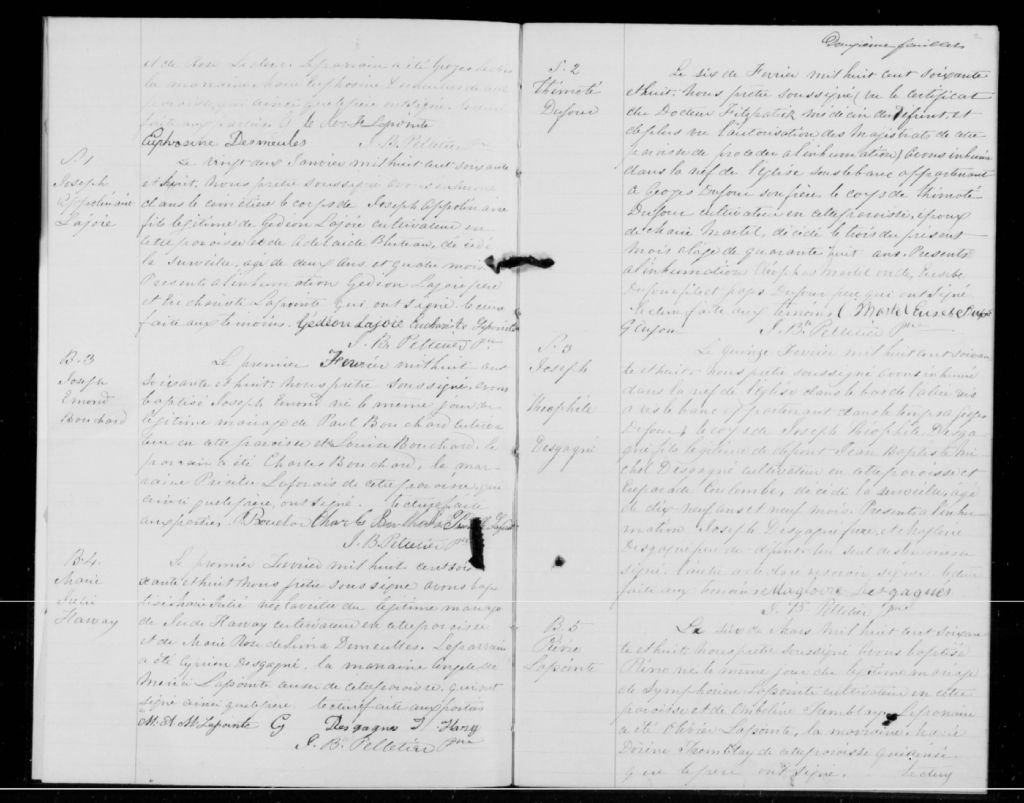 et de Rose Leclerc. Le parrain a été Georges
la marraine Marie Euphrosine Desmeules de cette
paroisse, qui ainsi que le père ont signé. Lecture
faite aux parties. Lapointe
Euphrosine Desmeules J. B. Pelletier Ptre
S. 1
Joseph
Appolinaire
Lajoie
Le vingt deux Janvier mil huit cent soixante
et huit. Nous prêtre soussigné avons inhumé
dans le cimetière le corps de Joseph Appolinaire
fils légitime de Gédéon Lajoie cultivateur en
cette paroisse et de Adelaïde Bluteau, décédé
la surveille, agé de deux ans et quatre mois
Présents à l'inhumation Gédéon Lajoie père
et Euchariste Lapointe qui ont signé. Lecture
faite aux témoins. Gédéon Lajoie Euchariste Lapointe
J. B. Pelletier Ptre
B. 3
Joseph
Emond
Bouchard
Le premier Fevrier mil huit cent
soixante et huit. Nous prêtre soussigné avons
baptisé Joseph Emond né le même jour du
légitime mariage de Paul Bouchard cultiva-
teur en cette paroisse et Louise Bouchard. Le
parrain a été Charles Bouchard, la mar-
raine de cette paroisse, qui
ainsi que le père, ont signé. Lecture faite
aux parties. P. Bouchard
J. B. Pelletier Ptre
B. 4
Marie
Julie
Harvay
Le premier Fevrier mil huit cent soi-
xante et huit Nous prêtre soussigné avons bap-
tisé Marie Julie née la veille du légitime mariage
de Jude Harvay cultivateur en cette paroisse
et de Marie Rose de Lima Demeulles. Le parrain
a été Cyprien Desgagné. la marraine Angele de
Merici Lapointe aussi de cette paroisse, qui ont
signé ainsi que le père. Lecture faite aux parties
M. A. M. Lapointe Desgagné
J. Bte Pelletier Ptre
Deuxième feuillets
S. 2
Thimoté
Dufour
Le six de Fevrier mil huit cent soixante
et huit. Nous prêtre soussigné (vu le certificat
du Docteur Fitzpatick médecin du défunt, et
de plus vu l'autorisation des Magistrats de cette
paroisse de proceder à l'inhumation) avons inhumé
dans la nef de l'église sous le banc appartenant
à Georges Dufour son frère, le corps de Thimoté
Dufour cultivateur en cette paroisse, époux
de Marie Martel, décédé le trois du présent
mois agé de quarante huit ans. Présents
à l'inhumation Cléophas Martel oncle, Eusèbe
Dufour fils et Dufour père qui ont signé
Lecture faite aux témoins C. Martel Eusèbe Dufour
J. Bte Pelletier Ptre
S. 3
Joseph
Théophile
Desgagné
Le quinze Fevrier mil huit cent soixan-
te et huit. Nous prêtre soussigné avons inhumé
dans la nef de l'église dans le bas de l'allée vis
à vis le banc appartenant dans le temps à Georges
Dufour, le corps de Joseph Théophile Desga-
gné fils légitime de défunt Jean Baptiste Mi-
chel Desgagné cultivateur en cette paroisse et
Coulombe, décédé la surveille, agé
de dix neuf ans et neuf mois. Présents à l'inhu-
mation Joseph Desgagné frère, et Magloire
Desgagné du défunt. Un seul des témoins a
signé. L'autre a déclaré ne savoir signer. Lecture
faite aux témoins Magloire Desgagnés
J. Bte Pelletier Ptre
B. 5
Pierre
Lapointe
Le dix de Mars mil huit cent soixan-
te et huit. Nous prêtre soussigné avons baptisé
Pierre né le même jour du légitime mariage
de Symphorien Lapointe cultivateur en cette
paroisse et de Ombeline Tremblay. Le parrain
a été Olivier Lapointe, la marraine Marie
Tremblay de cette paroisse qui ainsi
que le père ont signé. Lecture